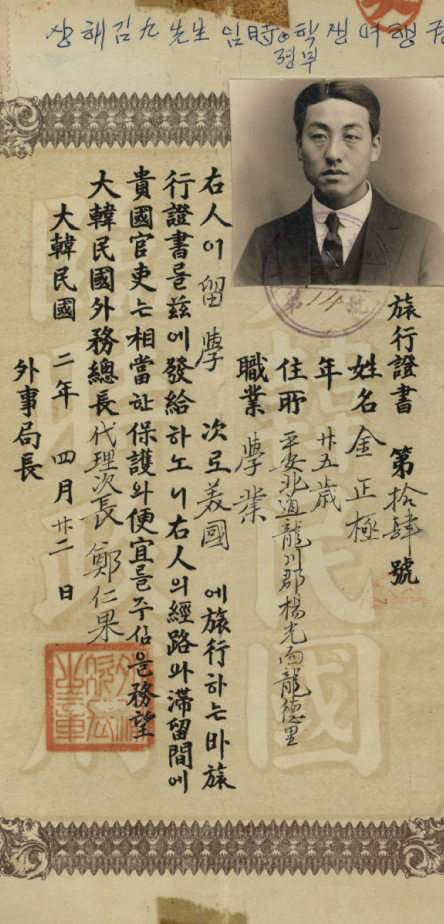 상해김九先生 임時 학생 여행
정부
第14號
旅行證書 第拾肆號
姓名 金正極
年 廿五歲
住所 平安北道龍川郡楊光面龍德里
職業 學業
右人이 留學 次로 美國에 旅行하는바 旅
行證書를 玆에 發給하노니 右人의 經路와 滯留間에
貴國官吏는 相當한 保護와 便宜를 주심을 務望
大韓民國外務總長代理次長 鄭仁果
大韓民國 二年 四月 廿二日
外事局長
大韓民國
臨時政府